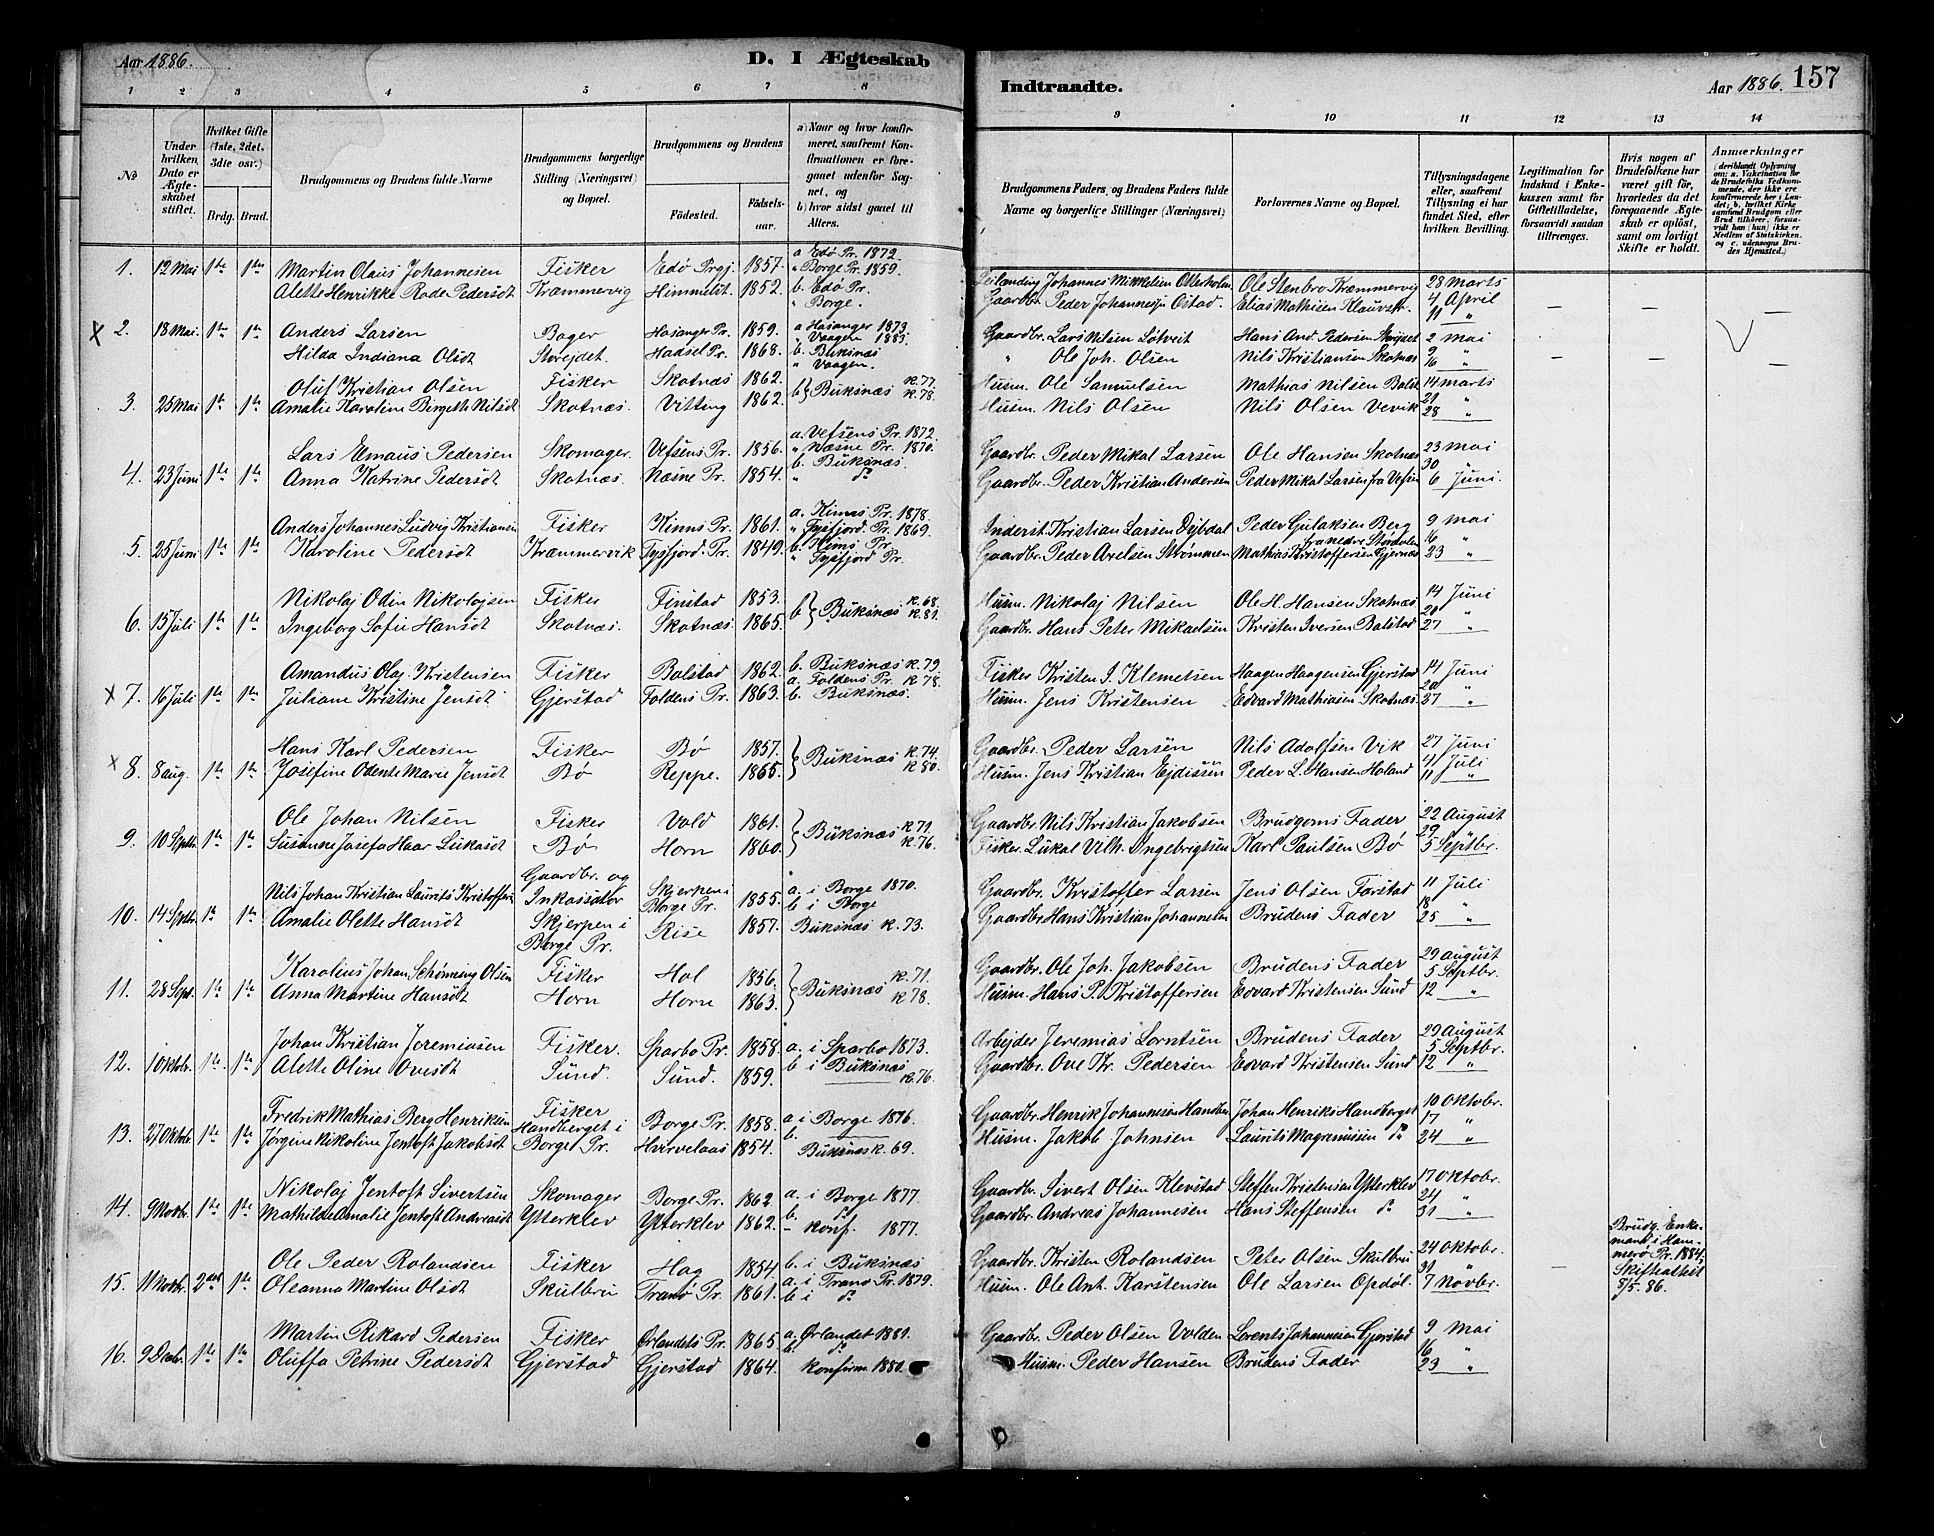 Aar 1886.
D. I Ægteskab
1 2 3 4 5 6 7 8
No
Under hvilken Dato er Ægteskabet stiftet.
Hvilket Gifte (1ste, 2det, 3dte osv.)
Brdg. Brud.
Brudgommens og Brudens fulde Navne
Brudgommens borgerlige Stilling (Næringsvei) og Bopæl.
Brudgommens og Brudens
Fødested. Fødselsaar.
a) Naar og hvor konfirmeret, saafremt Konfirmationen er foregaaet udenfor Sognet, og
b) hvor sidst gaaet til Alters.
1. 12 Mai 1ste 1ste Martin Olaus Johannesen Fisker Edø Prgj. 1857. a Edø Pr. 1872. " Borge Pr. 1859.
Alette Henrikke Rode Pedersdt Kræmmervig Himmelst. 1852. b. Edø Pr. " Borge.
X 2. 18 Mai. 1ste 1ste Anders Larsen Bager Hosanger Pr. 1859. a Hosanger 1873. " Vaagen 1883.
Hilda Indiana Olsdt Storejdet. Hadsel Pr. 1868. b. Buksnæs " Vaagen.
3. 25 Mai 1ste 1ste Oluf Kristian Olsen Fisker Skotnæs 1862. b Buksnæs k. 77.
Amalie Karoline Birgethe Nilsdt Skotnæs. Vitting 1862. k. 78.
4. 23 Juni 1ste 1ste Lars Emaus Pedersen Skomager. Vefsens Pr. 1856. a. Vefsens Pr. 1872. " Næsne Pr. 1870.
Anna Katrine Pedersdt Skotnæs. Næsne Pr. 1854. b. Buksnæs. " do
5. 25 Juni 1ste 1ste Anders Johannes Ludvig Kristiansen Fisker Kinns Pr. 1861. a. Kinns Pr. 1878. " Tysfjord. Pr. 1869.
Karoline Pedersdt Kræmmervik Tysfjord. Pr. 1849. b. Kinns Pr. " Tysfjord Pr.
6. 15 Juli 1ste 1ste Nikolaj Odin Nikolajsen Fisker Finstad 1853. b Buksnæs k. 68.
Ingeborg Sofie Hansdt Skotnæs. Skotnæs 1865. k. 81.
X 7. 16 Juli 1ste 1ste Amandus Olaj Kristensen Fisker Balstad 1862. b. Buksnæs k. 79
Juliane Kristine Jensdt Gjerstad Foldens Pr. 1863. a. Foldens Pr. k. 78. b. Buksnæs.
X 8. 8 aug. 1ste 1ste Hans Karl Pedersen Fisker Bø 1857. Buksnæs k. 74.
Josefine Odente Marie Jensdt Bø Reppe. 1865. k. 80.
9. 10 Septbr. 1ste 1ste Ole Johan Nilsen Fisker Vold 1861. Buksnæs k. 71.
Susanne Josefa Haar Lukasdt Bø Horn 1860. k. 76.
10. 14 Septbr. 1ste 1ste Nils Johan Kristian Laurits Kristoffersen Gaardbr. og Inkassator Skjerpen i Borge Pr. 1855. a. i Borge 1870. b. i Borge
Amalie Olette Hansdt Skjerpen i Borge Pr. Rise 1857. Buksnæs k. 73.
11. 28 Sept. 1ste 1ste Karolius Johan Schønning Olsen Fisker Hol 1856. Buksnæs k. 71.
Anna Martine Hansdt Horn Horn 1863. k. 78.
12. 1 Oktbr. 1ste 1ste Johan Kristian Jeremiasen Fisker. Sparbo Pr. 1858. a. i Sparbo 1873.
Alette Oline Ovesdt Sund. Sund. 1859. b i Buksnæs k. 76.
13. 27 Oktbr. 1ste 1ste Fredrik Mathias Berg Henriksen Fisker Handberget i Borge Pr. 1858. a i Borge 1876. b.
Jørgine Nikoline Jentoft Jakobsdt Borge Pr. Hvervelaas 1854. Buksnæs k. 69.
14. 9 Novbr. 1ste 1ste Nikolaj Jentoft Sivertsen Skomager Borge Pr. 1862 a. i Borge 1877.
Mathilde Amalie Jentoft Andreasdt Ytterklev Ytterklev 1862. b. do - konf. 1877.
15. 11 Novbr. 2det 1ste Ole Peder Rolandsen Fisker Hag 1854. b. i Buksnæs
Oleanna Martine Olsdt Skulbru Tranø Pr. 1861. a. i Tranø Pr. 1879. b i do
16. 9 Decbr. 1ste 1ste Martin Rikard Pedersen Fisker Ørlandets Pr. 1865 a. Ørlandet 1881. b. do
Oluffa Petrine Pedersdt Gjerstad Gjerstad 1864. konfirm 1880.
Indtraadte.
Aar 1886. 157
9 10 11 12 13 14
Brudgommens Faders, og Brudens Faders fulde Navne og borgerlige Stillinger (Næringsvei)
Forlovernes Navne og Bopæl.
Tillysningsdagene eller, saafremt Tillysning ei har fundet Sted, efter hvilken Bevilling.
Legitimation for Indskud i Enkekassen samt for Giftetilladelse, forsaavidt saadan tiltrænges.
Hvis nogen af Brudefolkene har været gift før, hvorledes da det foregaaende Ægteskab er opløst, samt om lovligt Skifte er holdt.
Anmærkninger (deriblandt Oplysning om: a. Vakcination for de Brudefolks Vedkommende, der ikke ere konfirmerede her i Landet; b. hvilket Kirkesamfund Brudgom eller Brud tilhører, forsaavidt han (hun) ikke er Medlem af Statskirken. og c. udensogns Brudes Hjemsted.)
Leilending Johannes Mikkelsen Otterholm Ole Stenbro Kræmmervig 28 Marts
Gaardbr. Peder Johannesen Ostad. Elias Mathisen Klauvst. 4 April
11 " – – –
Gaardbr. Lars Nilsen Løtveit Hans And. Pedersen Storejdet 2 Mai
" Ole Joh. Olsen Nils Kristiansen Skotnæs 9 " – –
16 " –
Husm. Ole Samuelsen Mathias Nilsen Balst. 14 Marts
Husm. Nils Olsen Nils Olsen Vevik 21 "
28 "
Gaardbr. Peder Mikal Larsen Ole Hansen Skotnæs 23 Mai
30 "
Gaardbr. Peder Kristian Andersen Peder Mikal Larsen fra Vefsen 6 Juni.
Inderst. Kristian Larsen Dybdal Peder Gulaksen Berg fra nedre Stordalen 9 Mai
16 "
Gaardbr. Peder Axelsen Strømmen Mathias Kristoffersen Gjernæs 23 "
Husm. Nikolaj Nilsen Ole H. Hansen Skotnæs 14 Juni
20 "
Gaardbr. Hans Peter Mikaelsen Kristen Iversen Balstad 27 "
Fisker Kristen I. Klemetsen Haagen Haagensen Gjerstad 14 Juni
20 "
Husm. Jens Kristensen Edvard Mathiasen Skotnæs. 27 "
Gaardbr. Peder Larsen Nils Adolfsen Vik 27 Juni
4 Juli
Husm. Jens Kristian Ejdissen Peder L. Hansen Holand 11 "
Gaardbr. Nils Kristian Jakobsen Brudgoms Fader 22 August
29 "
Fisker. Lukal Vilh. Ingebrigtsen Karl Paulsen Bø 5 Septbr.
Gaardbr. Kristoffer Larsen Jens Olsen Farstad 11 Juli
18 "
Gaardbr. Hans Kristian Johannesen Brudens Fader 25 "
Gaardbr. Ole Joh. Jakobsen Brudens Fader 29 August
5 Septbr.
Husm. Hans P. Kristoffersen Edvard Kristensen Sund 12 "
Arbejder Jeremias Lorntsen Brudens Fader 29 August
5 Septbr.
Gaardbr. Ove Kr. Pedersen Edvard Kristensen Sund 12 "
Gaardbr. Henrik Johannesen Handber. Johan Henriks Handberget 10 Oktobr.
17 "
Husm. Jakob Johnsen Laurits Magnussen do 24 "
Gaardbr. Sivert Olsen Klevstad Steffen Kristensen Ytterklev 17 Oktobr.
24 "
Gaardbr. Andreas Johannesen Hans Steffensen do 31 "
Gaardbr. Kristen Rolandsen Peter Olsen Skulbru 24 Oktobr.
31 "
Husm. Ole Ant. Karstensen Ole Larsen Opdøl. 7 Novbr. –
Brudg. Enkemand i Hammerø Pr. 1884. Skifteattest 8/5. 86.
Gaardbr. Peder Olsen Volden Lorents Johannesen Gjerstad 9 Mai
16 "
Husm. Peder Hansen Brudens Fader 23 "